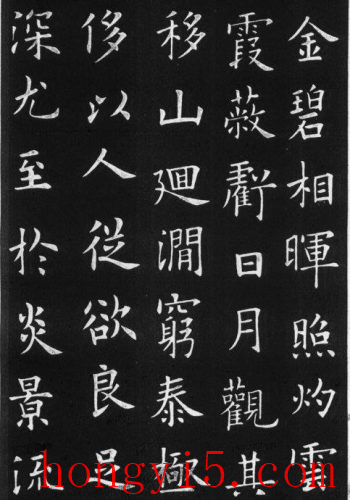 金碧相暉照灼雲
霞蔽虧日月觀其
移山迴澗窮泰極
侈以人從欲良足
深尤至於炎景流
hongyi5.com